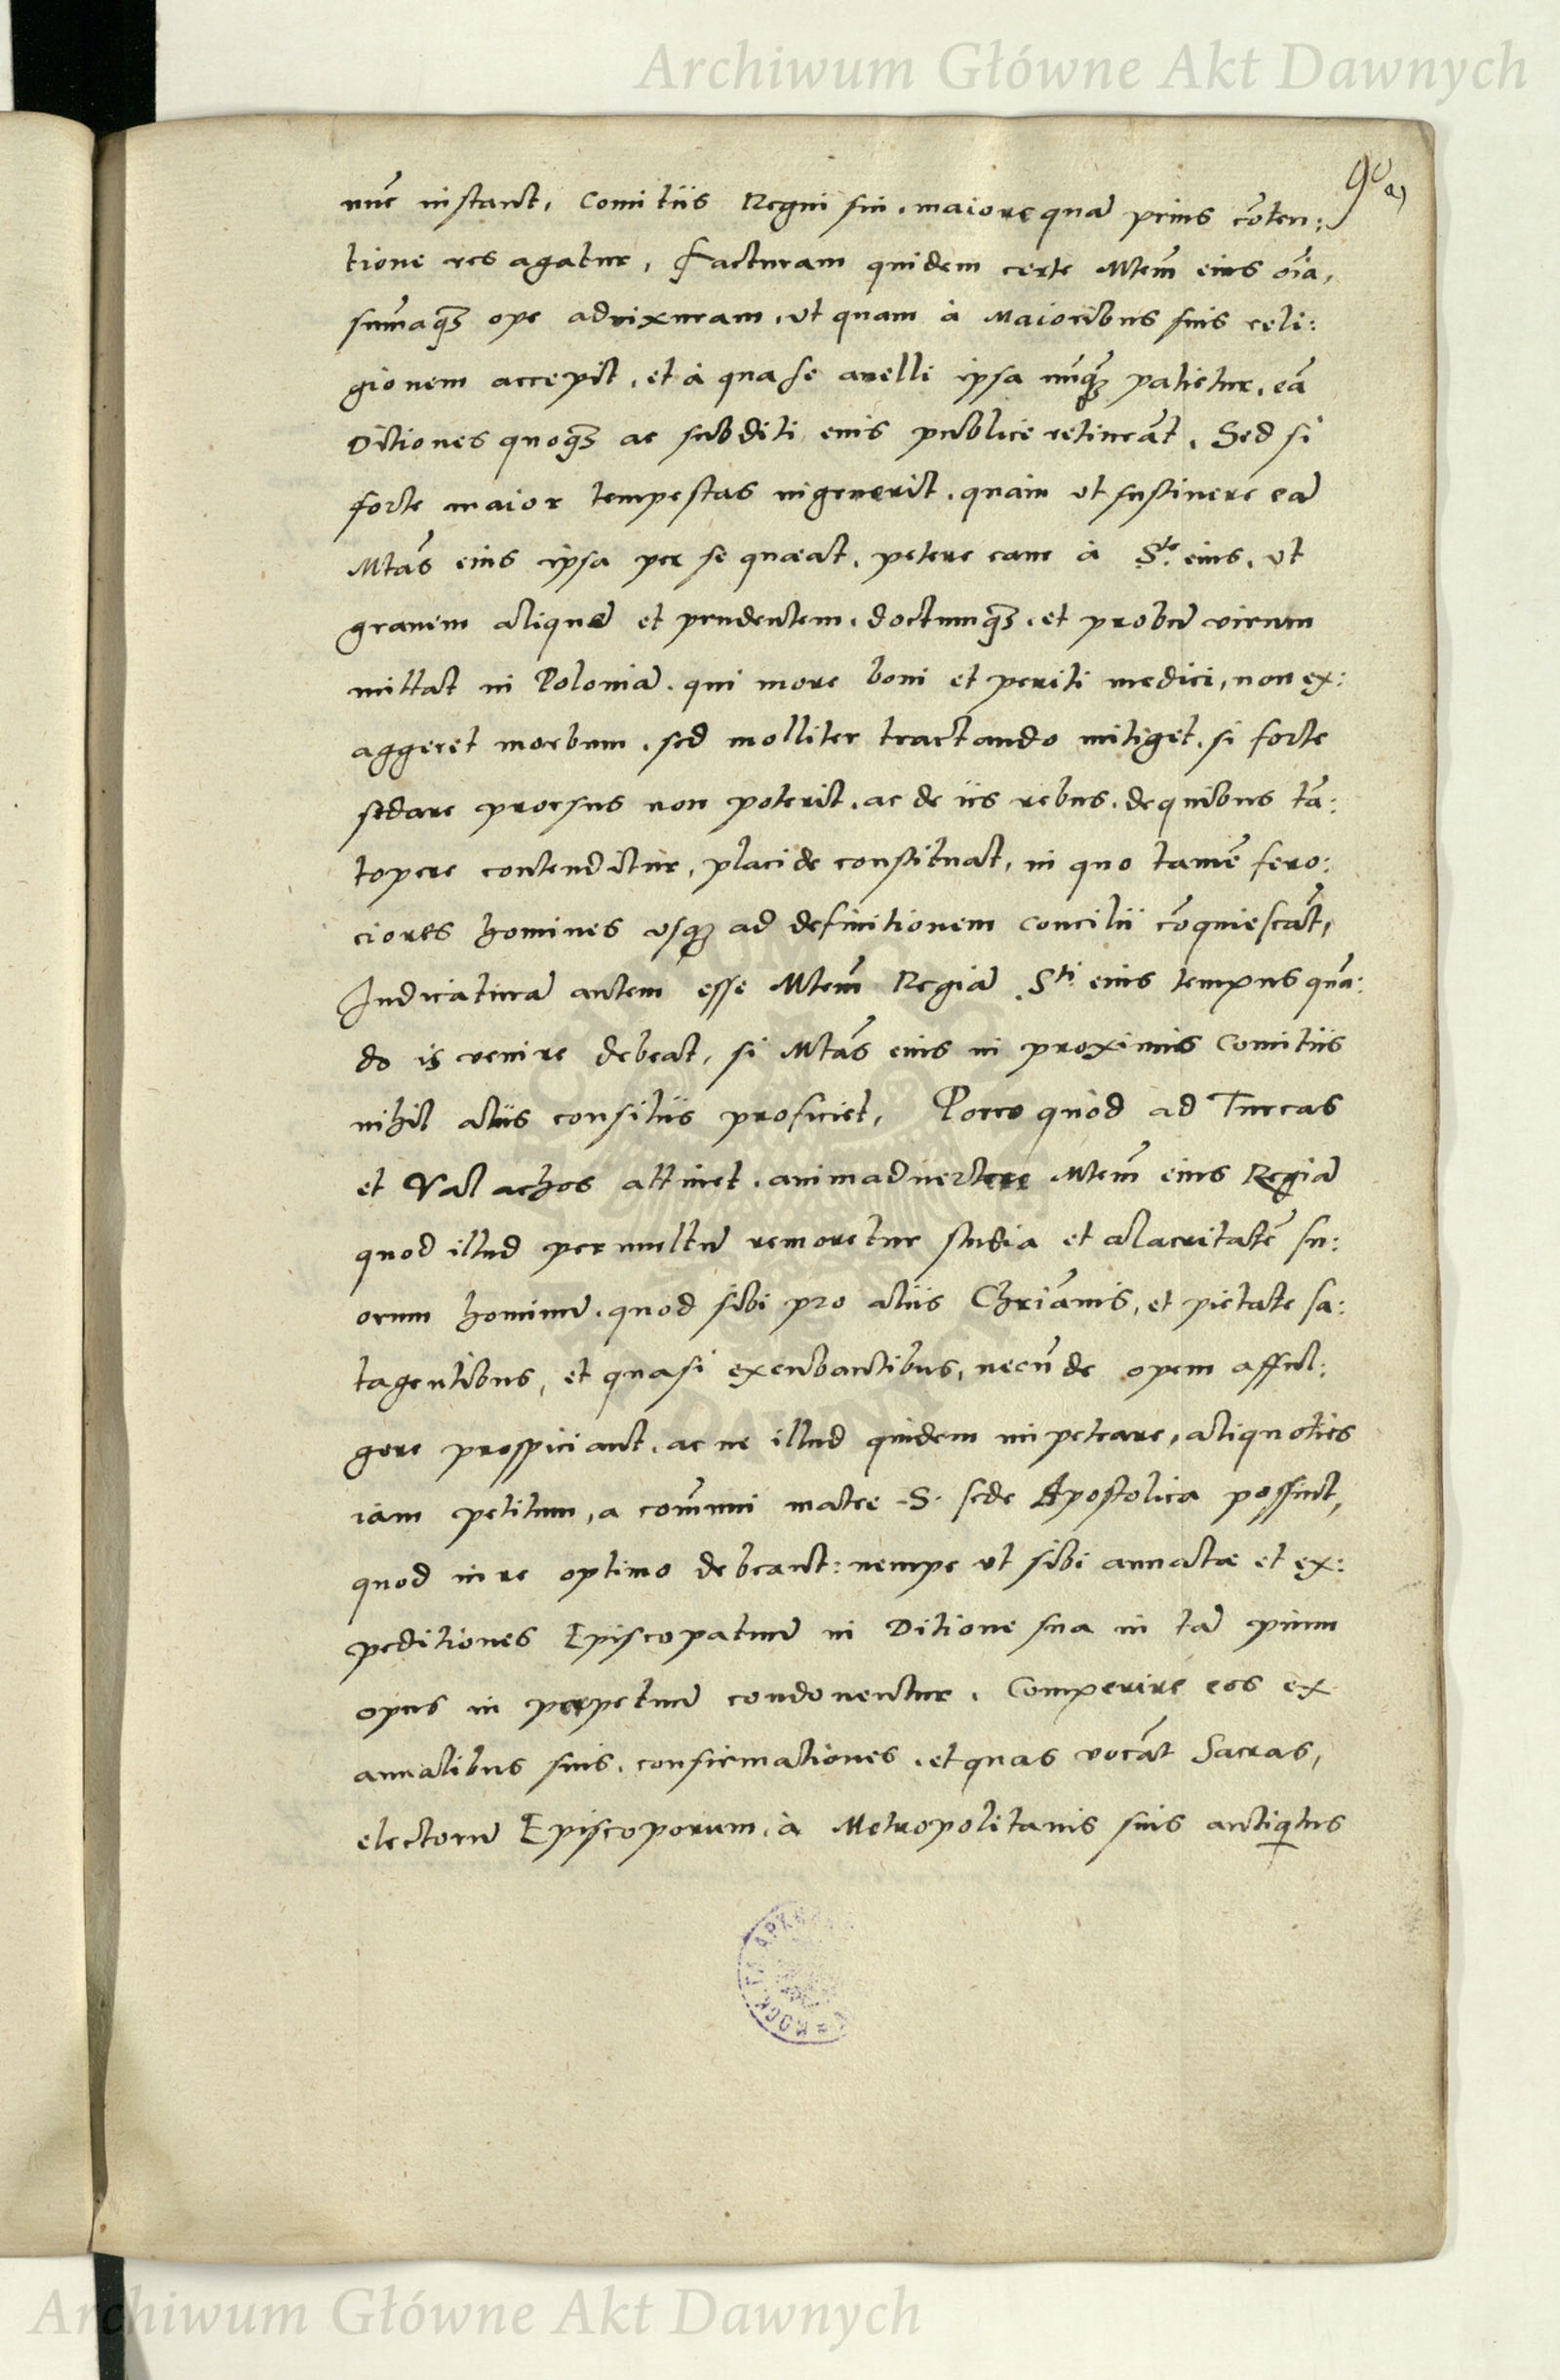 Archiwum Główne Akt Dawnych
90
nũc instant, Comitiis Regni sui, maiore quã prius cõten:
tione res agatur, Facturam quidem certe Mtem̃ eius oĩa,
sum̃aqꝫ ope adnixuram, ut quam à Maioribus suis reli:
gionem accepit, et à qua se avelli ipsa nũqꝫ patietur, eã
Ditiones quoqꝫ ac subditi eius publice retineãt. Sed si
forte maior tempestas ingruerit, quàm ut sustinere eã
Mtas̃ eius ipsa per se queat, petere eam à S.te eius, ut
gravem aliquẽ et prudentem, doctumqꝫ, et probũ virum
mittat in Poloniã, qui more boni et periti medici, non ex:
aggeret morbum, sed molliter tractando mitiget, si forte
sedare prorsus non poterit, ac de iis rebus, de quibus tã:
topere contenditur, placide constituat, in quo tamẽ fero:
ciores homines usqꝫ ad definitionem Concilii cõquiescãt,
Indicaturã autem esse Mtem̃ Regiã S.ti eius tempus quã:
do is venire debeat, si Mtas̃ eius in proximis Comitiis
nihil aliis consiliis proficiet, Porro quòd ad Turcas
et Valachos attinet, animadvertere Mtem̃ eius Regiã
quod illud permultũ remoretur studia et alacritatẽ su:
orum hominũ, quod sibi pro aliis Chriãnis, et pietate sa:
tagentibus, et quasi excubantibus, necũde opem afful:
gere prospiciant, ac ne illud quidem impetrare, aliquoties
iam petitum, a com̃uni matre S. sede Apostolica possint,
quod iure optimo debeant: nempe ut sibi annatæ et ex:
peditiones Episcopatuũ in Ditione sua in tã pium
opus in perpetuũ condonentur. Comperire eos ex
annalibus suis, confirmationes, et quas vocãt Sacras,
electorũ Episcoporum, à Metropolitanis suis antiqitus
Archiwum Główne Akt Dawnych